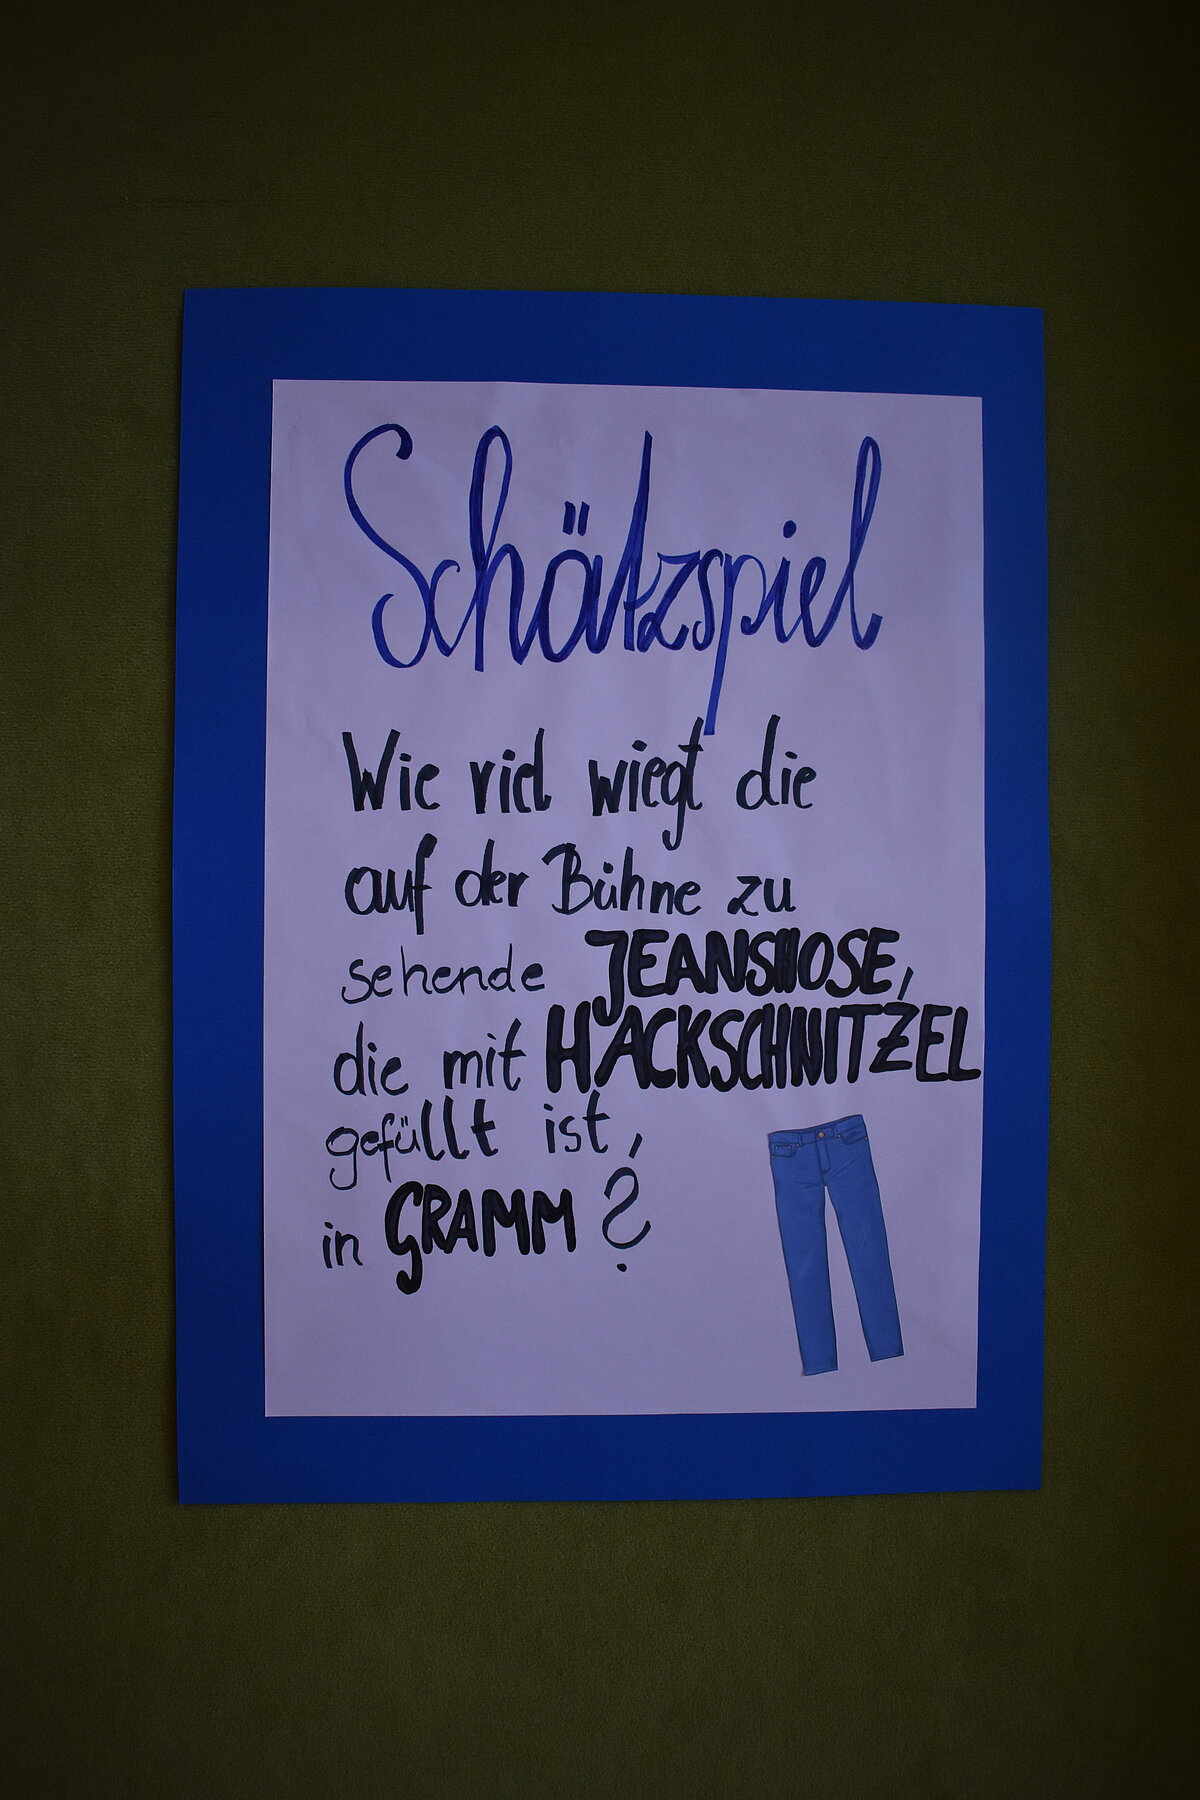 Schätzspiel
Wie viel wiegt die
auf der Bühne zu
sehende JEANSHOSE,
die mit HACKSCHNITZEL
gefüllt ist,
in GRAMM?